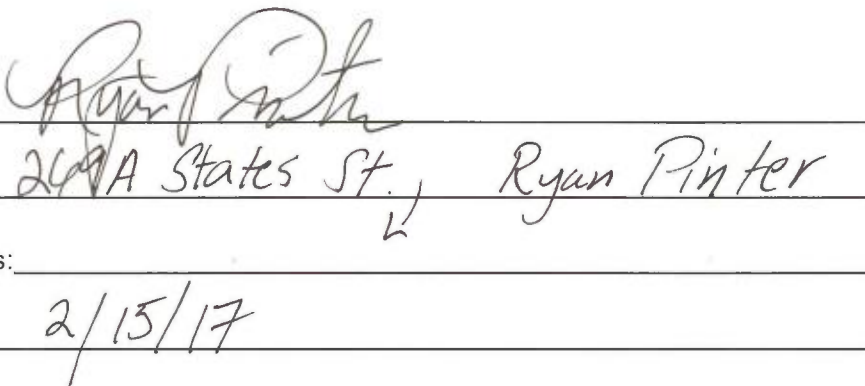 Ryan Pinter
249A States St., Ryan Pinter
s:
2/15/17